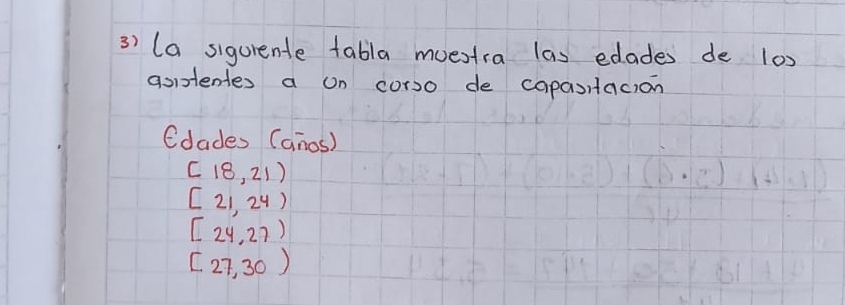 3) La siguiente tabla muestra las edades de los
asistentes a un curso de capasitación
Edades (años)
[18,21)
[21,24)
[24,27)
[27,30)